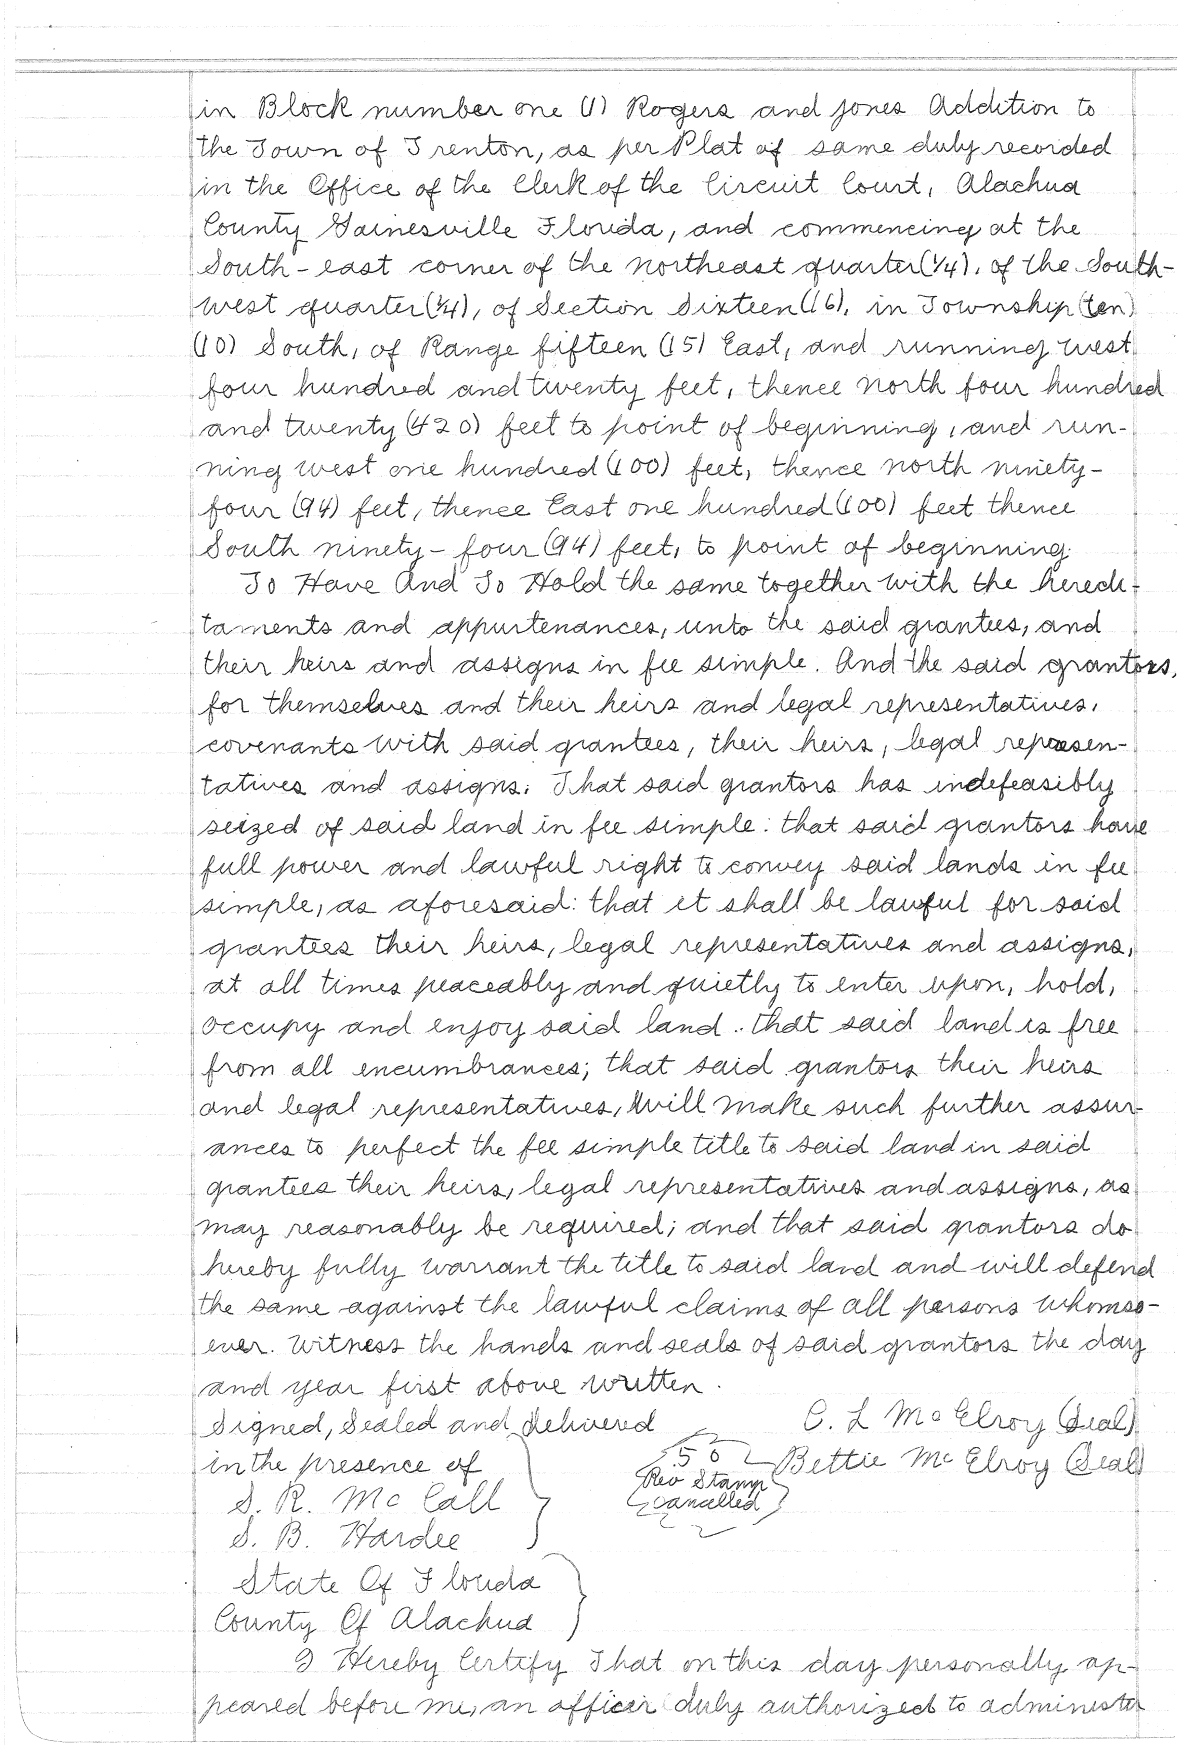 in Block number one (1) Rogers and Jones Addition to
the Town of Trenton, as per Plat of same duly recorded
in the Office of the Clerk of the Circuit Court, Alachua
County Gainesville Florida, and commencing at the
South-east corner of the northeast quarter (1/4), of the South-
west quarter (1/4), of Section Sixteen (16), in Township (ten)
(10) South, of Range fifteen (15) East, and running west
four hundred and twenty feet, thence North four hundred
and twenty (420) feet to point of beginning, and run-
ning west one hundred (100) feet, thence north ninety-
four (94) feet, thence East one hundred (100) feet thence
South ninety-four (94) feet, to point of beginning.
To Have And To Hold the same together with the heredi-
taments and appurtenances, unto the said grantees, and
their heirs and assigns in fee simple. And the said grantors,
for themselves and their heirs and legal representatives,
covenants with said grantees, their heirs, legal represen-
tatives and assigns: That said grantors has indefeasibly
seized of said land in fee simple: that said grantors have
full power and lawful right to convey said lands in fee
simple, as aforesaid: that it shall be lawful for said
grantees their heirs, legal representatives and assigns,
at all times peaceably and quietly to enter upon, hold,
occupy and enjoy said land: that said land is free
from all encumbrances; that said grantors their heirs
and legal representatives, will make such further assur-
ances to perfect the fee simple title to said land in said
grantees their heirs, legal representatives and assigns, as
may reasonably be required; and that said grantors do
hereby fully warrant the title to said land and will defend
the same against the lawful claims of all persons whomso-
ever. Witness the hands and seals of said grantors the day
and year first above written.
Signed, Sealed and Delivered
in the presence of
S. R. McCall
S. B. Hardee
C. L McElroy (Seal)
Bettie McElroy (Seal)
.50
Rev Stamp
cancelled
State Of Florida
County Of Alachua
I Hereby Certify That on this day personally ap-
peared before me, an officer duly authorized to administer